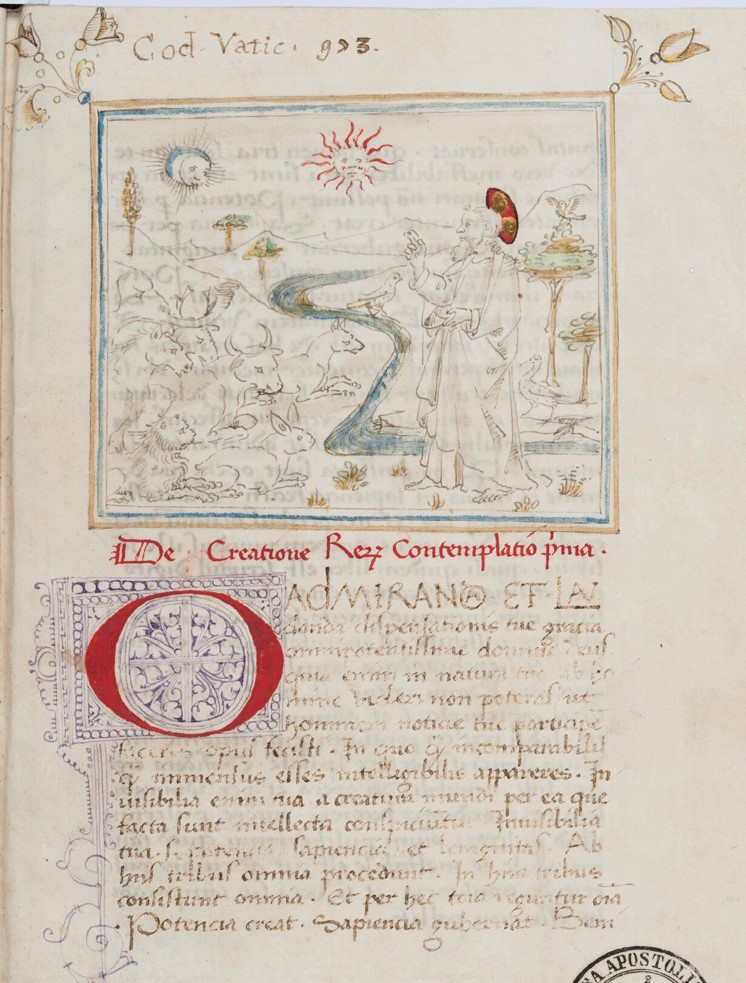 Cod. Vatic. 973.
De Creatione Reꝝ Contemplatio p̄ma.
O ADMIRAND ET LAU
danda dispensationis tue gracia
omnipotentissime domine deus
enim in natura tua ab ho
mine videri non poteras ut
hominem noticie tue participem
faceres opus fecisti. In quo qͥ incomparabilis
qͥ immensus esses intelligibilis appareres. In
uisibilia enim tua a creatura mundi per ea que
facta sunt intellecta conspiciuntur. Inuisibilia
tua. s. potencia sapiencia et benignitas. Ab
hiis tribus omnia procedunt. In hiis tribus
consistunt omnia. Et per hec tria reguntur oīa
Potencia creat. Sapiencia gubernat. Beni
A APOSTOLI